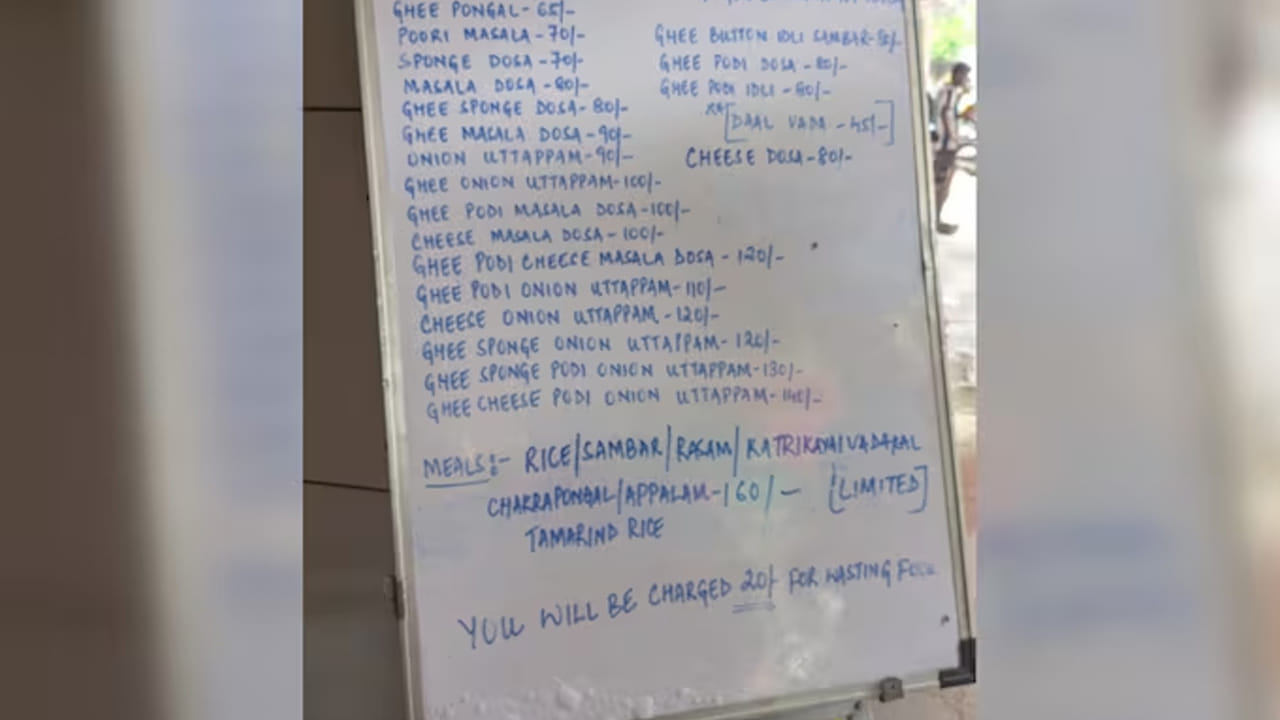 GHEE PONGAL - 65/-
POORI MASALA - 70/-
SPONGE DOSA - 70/-
MASALA DOSA - 80/-
GHEE SPONGE DOSA - 80/-
GHEE MASALA DOSA - 90/-
ONION UTTAPPAM - 90/-
GHEE ONION UTTAPPAM - 100/-
GHEE PODI MASALA DOSA - 100/-
CHEESE MASALA DOSA - 100/-
GHEE PODI CHEESE MASALA DOSA - 120/-
GHEE PODI ONION UTTAPPAM - 110/-
CHEESE ONION UTTAPPAM - 120/-
GHEE SPONGE ONION UTTAPPAM - 120/-
GHEE SPONGE PODI ONION UTTAPPAM - 130/-
GHEE CHEESE PODI ONION UTTAPPAM - 140/-
GHEE BUTTON IDLI SAMBAR -
GHEE PODI DOSA - 80/-
GHEE PODI IDLI -
[DAAL VADA - 45/-]
CHEESE DOSA - 80/-
MEALS:- RICE/SAMBAR/RASAM/KATRIKAYAI VADAKAL
CHAKRAPONGAL/APPALAM - 160/- [LIMITED]
TAMARIND RICE
YOU WILL BE CHARGED 20/- FOR WASTING